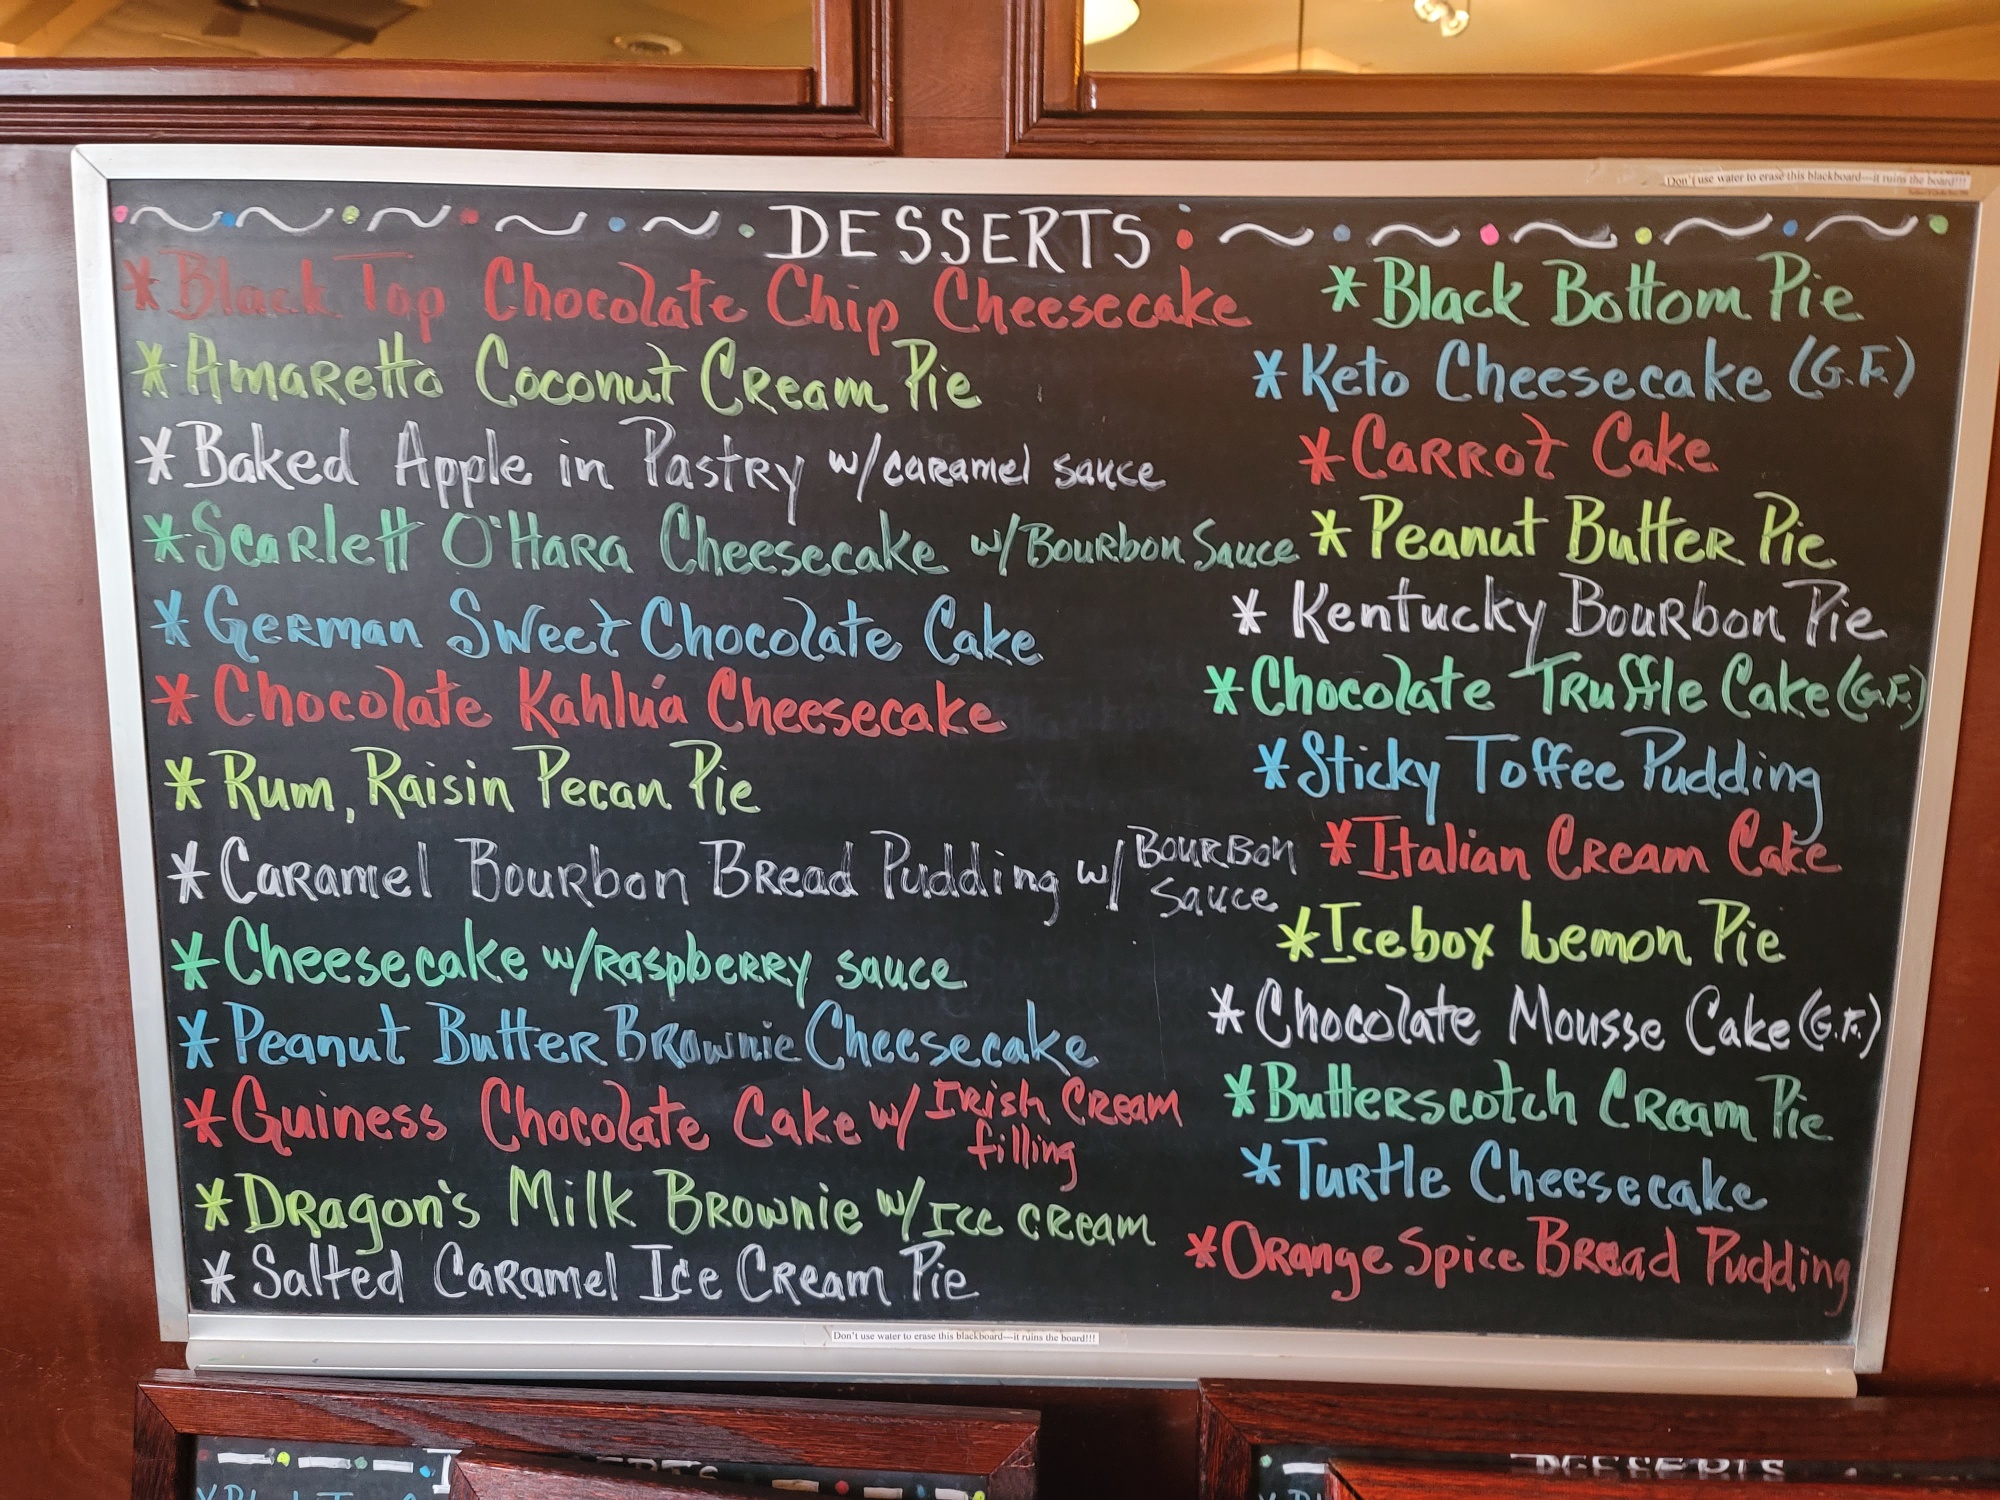 Don't use water to erase this blackboard—it ruins the board!!!
DESSERTS
*Black Top Chocolate Chip Cheesecake
*Amaretto Coconut Cream Pie
*Baked Apple in Pastry w/caramel sauce
*Scarlett O'Hara Cheesecake w/Bourbon Sauce
*German Sweet Chocolate Cake
*Chocolate Kahlúa Cheesecake
*Rum, Raisin Pecan Pie
*Caramel Bourbon Bread Pudding w/ Bourbon
Sauce
*Cheesecake w/raspberry sauce
*Peanut Butter Brownie Cheesecake
*Guiness Chocolate Cake w/ Irish Cream
filling
*Dragon's Milk Brownie w/Ice cream
*Salted Caramel Ice Cream Pie
*Black Bottom Pie
*Keto Cheesecake (G.F.)
*Carrot Cake
*Peanut Butter Pie
*Kentucky Bourbon Pie
*Chocolate Truffle Cake (G.F.)
*Sticky Toffee Pudding
*Italian Cream Cake
*Icebox Lemon Pie
*Chocolate Mousse Cake (G.F.)
*Butterscotch Cream Pie
*Turtle Cheesecake
*Orange Spice Bread Pudding
Don't use water to erase this blackboard—it ruins the board!!!